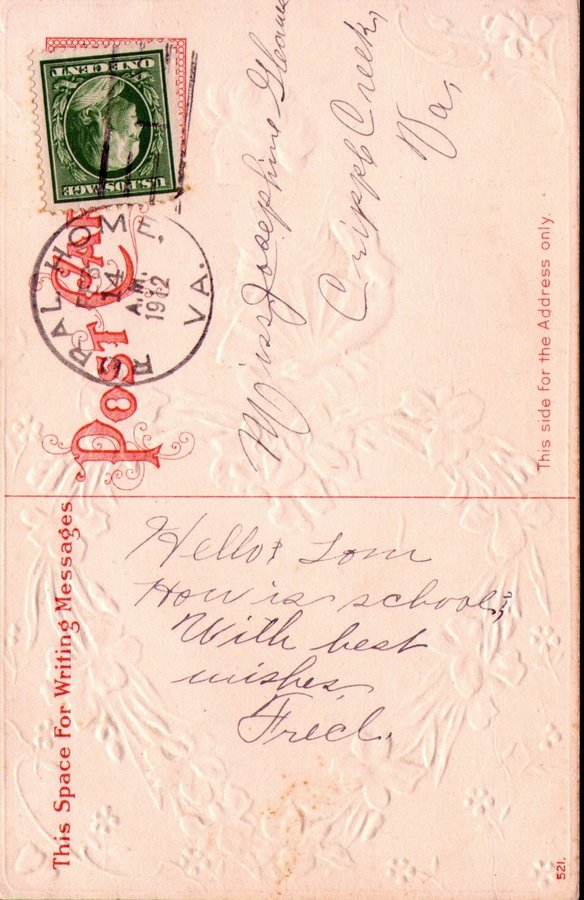 POST CARD
This Space For Writing Messages
Hello Tom
How is school,
With best
wishes,
Fred.
U.S. POSTAGE
ONE CENT
RURAL HOME
FEB
14
A.M.
1912
VA.
Miss Josephine
Cripple Creek,
Va,
This side for the Address only.
521.